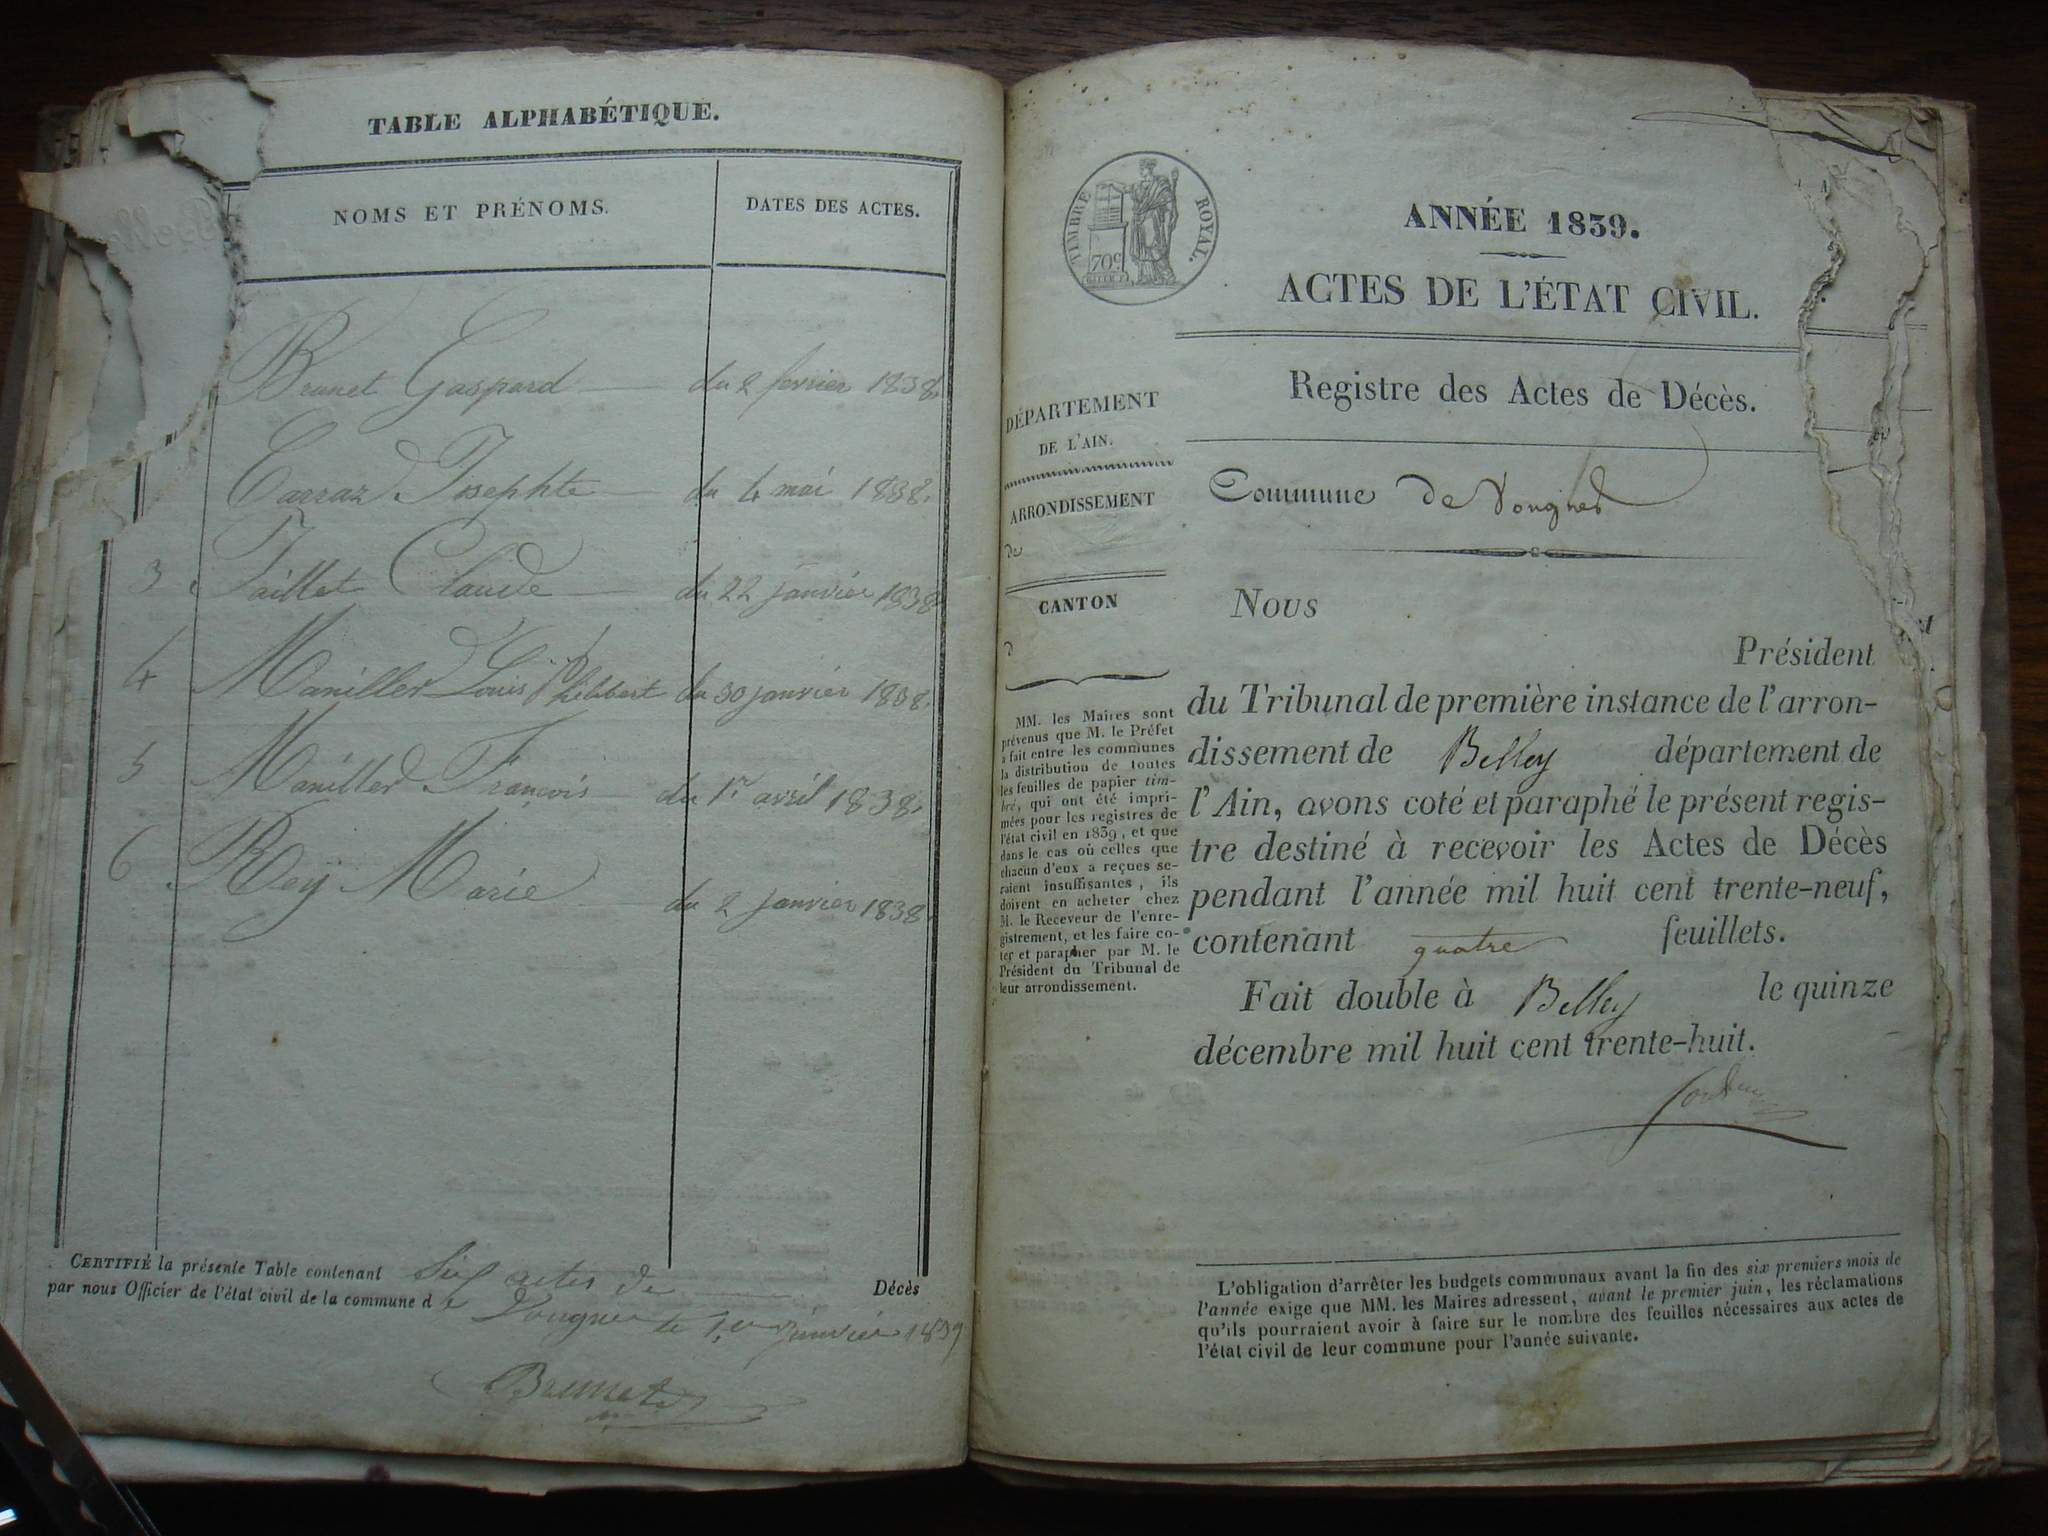 TABLE ALPHABÉTIQUE.
NOMS ET PRÉNOMS.
DATES DES ACTES.
Brunet Gaspard du 2 fevrier 1838.
Carraz Josephte du 4 mai 1838.
3 Jaillet Claude du 22 janvier 1838
4 Maniller Louis philibert du 30 janvier 1838.
5 Maniller François du 1r avril 1838.
6 Rey Marie du 2 janvier 1838
CERTIFIÉ la présente Table contenant Six actes de Décès
par nous Officier de l'état civil de la commune d e Vougnes le 1er janvier 1839
Brunet
TIMBRE ROYAL.
70c
ANNÉE 1839.
ACTES DE L'ÉTAT CIVIL.
Registre des Actes de Décès.
DÉPARTEMENT
DE L'AIN.
ARRONDISSEMENT
de
CANTON
d
MM. les Maires sont
prévenus que M. le Préfet
a fait entre les communes
la distribution de toutes
les feuilles de papier tim-
bré, qui ont été impri-
mées pour les registres de
l'état civil en 1839, et que
dans le cas où celles que
chacun d'eux a reçues se-
raient insuffisantes, ils
doivent en acheter chez
M. le Receveur de l'enre-
gistrement, et les faire co-
ter et parapher par M. le
Président du Tribunal de
leur arrondissement.
Commune de Vougnes
Nous
Président
du Tribunal de première instance de l'arron-
dissement de Belley département de
l'Ain, avons coté et paraphé le présent regis-
tre destiné à recevoir les Actes de Décès
pendant l'année mil huit cent trente-neuf,
contenant quatre feuillets.
Fait double à Belley le quinze
décembre mil huit cent trente-huit.
L'obligation d'arrêter les budgets communaux avant la fin des six premiers mois de
l'année exige que MM. les Maires adressent, avant le premier juin, les réclamations
qu'ils pourraient avoir à faire sur le nombre des feuilles nécessaires aux actes de
l'état civil de leur commune pour l'année suivante.